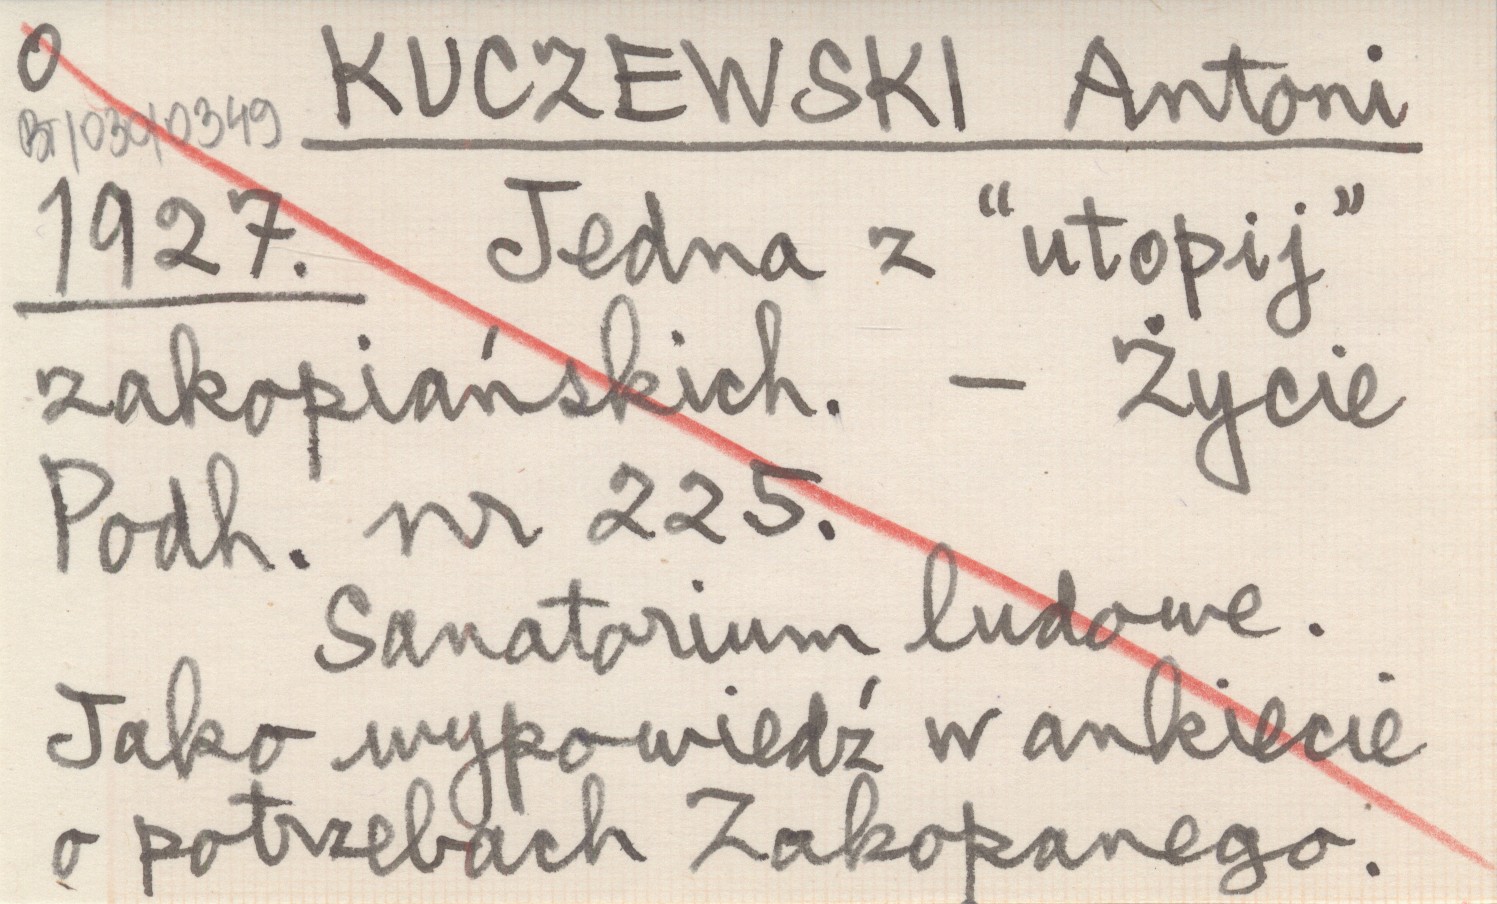 O KUCZEWSKI Antoni
BT/030/0349
1927. Jedna z “utopij”
zakopiańskich. – Życie
Podh. nr 225.
Sanatorium ludowe.
Jako wypowiedź w ankiecie
o potrzebach Zakopanego.